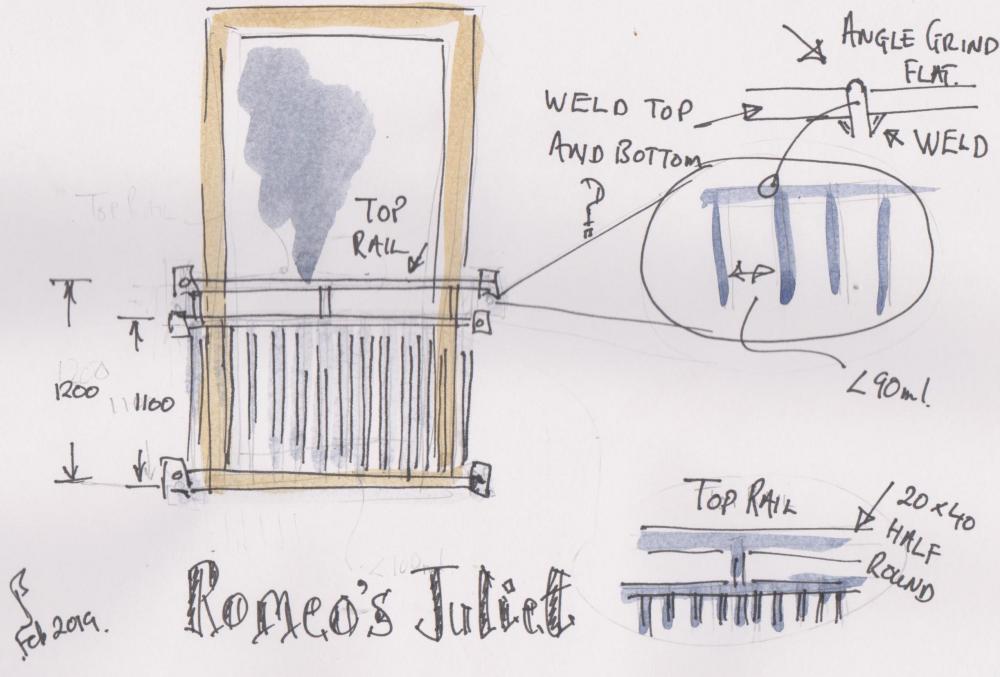 ANGLE GRIND
FLAT.
WELD TOP
AND BOTTOM
?
WELD
TOP RAIL
TOP
RAIL
1200
1200
1100
<90ml.
TOP RAIL
20x40
HALF
ROUND
Romeo's Juliet
Feb 2019.